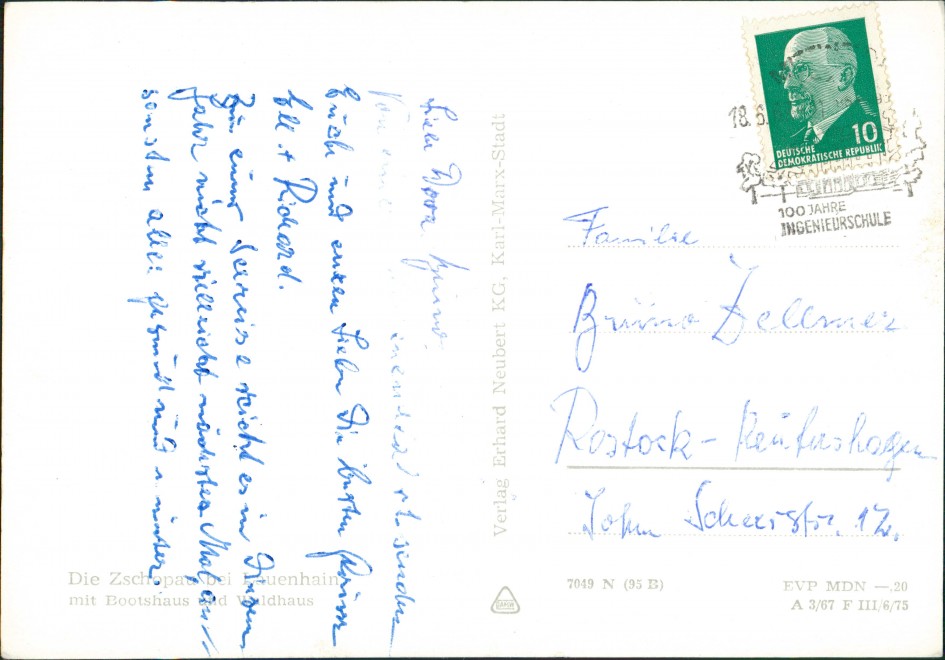 Liebe Dora, Bruno.
Von einem senden
Euch und euren Lieben die besten Grüsse
Elle + Richard.
Zum einer Reise reicht es in diesem
Jahr nicht vielleicht nächstes Mal
sonst alles gesund und munter.
Die Zschopau bei Lauenhain
mit Bootshaus und Waldhaus
Verlag Erhard Neubert KG, Karl-Marx-Stadt
18.6.
10
DEUTSCHE
DEMOKRATISCHE REPUBLIK
100 JAHRE
INGENIEURSCHULE
Familie
Bruno Zellmer
Rostock-Reutershagen
John Scheerstr. 12.
7049 N (95 B)
EVP MDN —.20
A 3/67 F III/6/75